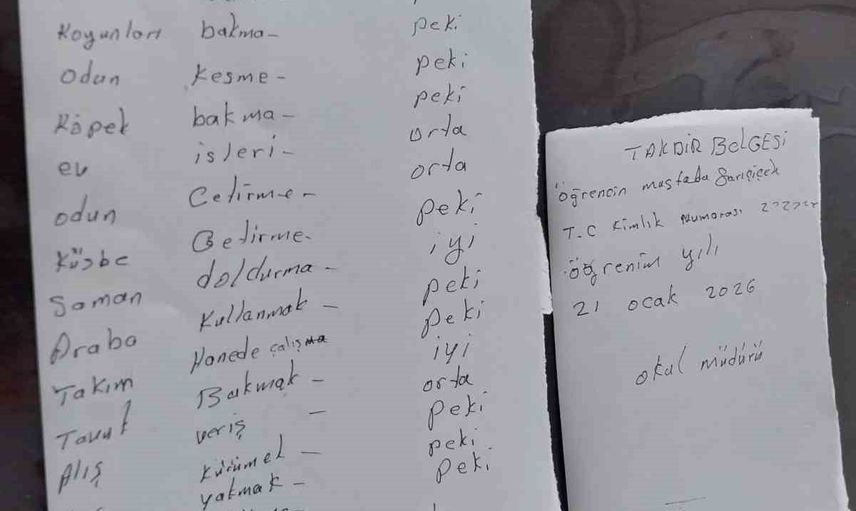 Koyunları bakma- peki
odun kesme- peki
Köpek bakma- peki
ev isleri- orta
odun Getirme- orta
Küsbe Getirme- peki
Saman doldurma- iyi
Araba Kullanmak- peki
Takım Hanede çalışma peki
Tavuk Bakmak- iyi
Alış veriş - orta
peki
kürümek- peki
yakmak- peki
TAKDİR BELGESİ
Öğrencin mustafa Sarıçiçek
T.C Kimlik Numarası
öğrenim yılı
21 ocak 2026
okul müdürü